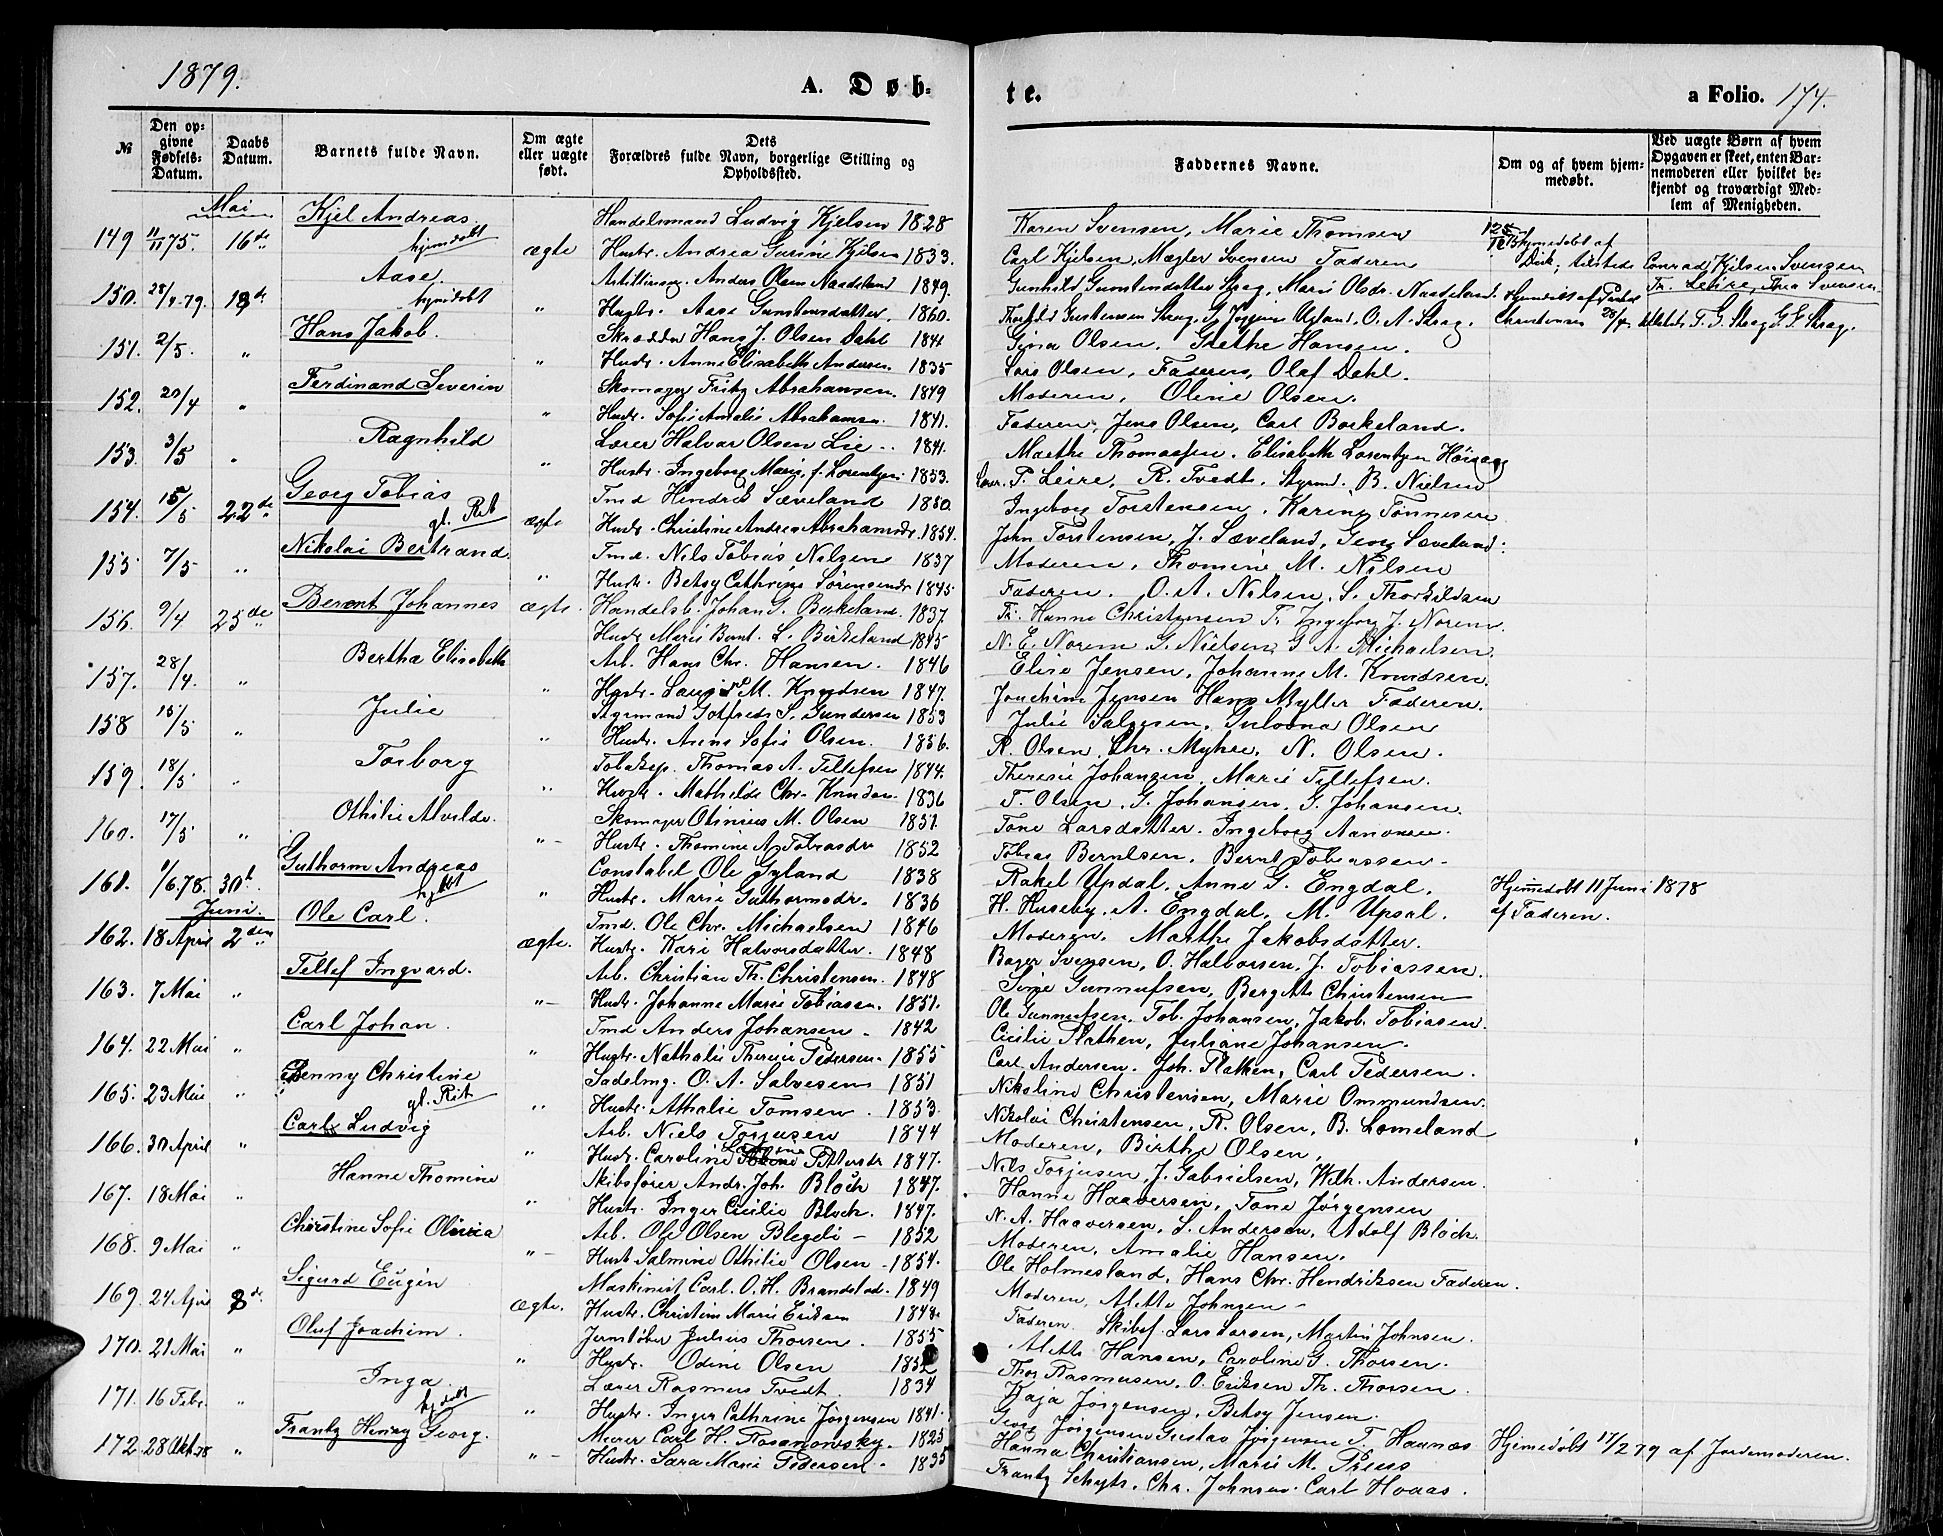 1879.
A. Døb-
te.
a Folio. 174.
№ | Den opgivne Fødsels-Datum. | Daabs Datum. | Barnets fulde Navn. | Om ægte eller uægte født. | Dets Forældres fulde Navn, borgerlige Stilling og Opholdssted. | Faddernes Navne. | Om og af hvem hjemmedøbt. | Ved uægte Børn af hvem Opgaven er skeet, enten Barnemoderen eller hvilket bekjendt og troværdigt Medlem af Menigheden.
Mai
Kjel Andreas. Handelsmand Ludvig Kjelsen 1828 Karen Svensen, Marie Thomsen
149 11/11 75. 16de hjemdøbt ægte Hustr. Andrea Gurine Kjelsen 1833. Carl Kjelsen, Mægler Svensen Faderen hjemedøbt af Dick; tilstede Conrad Kjelsen Svensen
Aase. Anders Olsen Naadeland 1849. Gunhild Gunstensdatter Strag, Marie Olsdr. Naadeland. Fr. Leire, Thea Svensen
150. 28/4 79. 18de hjemdøbt " Aase Gunstensdatter. 1860. O. A. Strag. Christensen 28/4 G. Strag.
Hans Jakob. Skrædder Hans J. Olsen Dahl 1841 Olsen, Grethe Hansen.
151. 2/5. " " Hustr. Anne Elisabeth Andersen. 1835 Lars Olsen, Faderen, Olaf Dahl.
Ferdinand Severin Skomager Fritz Abrahamsen. 1849 Moderen, Oline Olsen.
152. 20/4 " " Hustr. Sofie Amalie Abrahamsen. 1841. Faderen, Jens Olsen, Carl Borkeland.
Ragnhild Lærer Halvor Olsen Lie.. 1841. Marthe Thomassen. Elisabeth Lorentzen
153. 3/5 " " Hustr. Ingeborg Marie f. Lorentzen. 1853. Leire, R. Tvedt, Styrmd. B. Nielsen
Georg Tobias Tmd Hendrik Sæveland 1850. Ingeborg Torstensen, Karine Tønnesen
154. 15/5 22de gl. Rit ægte Hustr. Christine Andrea Abrahamsdr. 1854. John Torstensen, J. Sæveland, Georg Sæveland.
Nikolai Bertrand. Tmd. Nils Tobias Nilsen 1837 Moderen, Thomine M. Nilsen
155. 7/5 " " Hustr. Betsy Cathrine Sørensendr 1845. Faderen. O. A. Nilsen, S. Thorkildsen
Berent Johannes Handelsb. Johan G. Birkeland. 1837. Fr. Hanne Christensen Fr. Ingeborg J. Norem.
156. 9/4 25de ægte. Hustr Marie Bernt. L. Birkeland 1845 N. E. Norem G. Nielsen, G. A. Michaelsen.
Bertha Elisabeth Arb. Hans Chr. Hansen. 1846 Elise Jensen, Johanne M. Knudsen.
157. 28/4. " " Hustr. M. Knudsen 1847. Joachim Jensen Hans Myller Faderen.
Julie Styrmand Gotfreds S. Gundersen 1853 Julie Salvesen, Gulovna Olsen
158 15/5 " " Hustr. Anne Sofie Olsen. 1856. R. Olsen, Chr. Myhre, N. Olsen.
Torborg Tobaksp. Thomas A. Tellefsen 1844. Theresie Johansen, Marie Tellefsen.
159. 18/5 " " Hustr. Mathilde Chr. Knudsen 1836 T. Olsen, G. Johansen, G. Johansen.
Othilie Alvilde. Skomager Otinius M. Olsen 1851. Tone Larsdatter. Ingeborg Aanonsen.
160. 17/5 " " Hustr. Thomine A. Tobiasdr 1852 Tobias Berntsen, Bernt Tobiassen.
Guthorm Andreas Constabel Ole Gyland 1838 Rakel Updal, Anne G. Engdal. Hjemedøbt 11 Juni 1878
161. 1/6.78. 30t. " Hustr. Marie Guthormsdr. 1836 H. Huseby, A. Engdal, M. Upsal. af Faderen.
Juni.
Ole Carl. Tmd. Ole Chr. Michaelsen 1846 Moderen. Marthe Jakobsdatter.
162. 18 April 2den ægte. Hustr. Kari Halvorsdatter. 1848 Bager Svensen, O. Halvorsen, J. Tobiassen.
Tellef Ingvard. Arb. Christian Th. Christensen. 1848 Sine Gunnufsen, Bergitte Christensen
163. 7 Mai " " Hustr. Johanne Marie Tobiasen. 1851. Ole Gunnufsen, Tob. Johansen, Jakob. Tobiasen.
Carl Johan. Tmd Anders Johansen 1842 Cecilie Flathen, Juliane Johansen.
164. 22 Mai " " Hustr. Nathalie Theresie Pedersen. 1855 Carl Andersen. Joh. Flatken, Carl Pedersen.
Jenny Christine Sadelmg. O. A. Salvesen 1851 Nikoline Christensen, Marie Ommundsen.
165. 23 Mai " gl. Rit " Hustr. Athalie Tomsen. 1853. Nikolai Christensen, R. Olsen, B. Lomeland
Carl Ludvig Arb. Niels Torjusen 1844 Moderen, Birthe Olsen,
166. 30 April " " Hustr. Caroline Pettersdr 1847. Nils Torjusen, J. Gabrielsen, Wilh. Andersen.
Hanne Thomine Skibsfører Andr. Joh. Bloch 1847. Hanne Haaversen, Tone Jørgensen
167. 18 Mai " " Hustr. Inger Cecilie Bloch. 1847. N. A. Haaversen, S. Andersen, Adolf Bloch.
Christine Sofie Arb. Ole Olsen Blegeli 1852 Moderen, Amalie Hansen.
168. 9 Mai " " Hust Salmine Othilie Olsen 1854. Ole Holmesland, Hans Chr. Hendriksen Faderen.
Sigurd Eugin Maskinist Carl. O. H. Brandstad. 1849 Moderen, Alette Johnsen
169 24 April 8de ægte. Hustr. Christine Marie Eriksen 1848. Faderen. Skibsf. Lars Larsen, Martin Johnsen.
Oluf Joachim. Jernstøber Julius Thorsen. 1855 Alette Hansen, Caroline G. Thorsen.
170. 21 Mai " " Hustr. Odine Olsen Thor Rasmusen, O. Eriksen Th. Thorsen
Inga. Lærer Rasmus Tvedt. 1834 Kaja Jørgensen, Betsy Jensen.
171. 16 Febr. " " Hustr. Inger Cathrine Jørgensen 1841. Georg Jørgensen Gustav Jørgensen T. Haanæs
Frantz Henry Georg. Murer Carl H. Rosanowsky. 1825 Hanna Christiansen, Marie M. Preus Hjemedøbt 17/2 79 af Jordemoderen.
172. 28 Okt 78 " " Hustr. Sara Marie Pedersen. 1835 Frantz Schyts, Chr. Johnsen. Carl Hoaas.